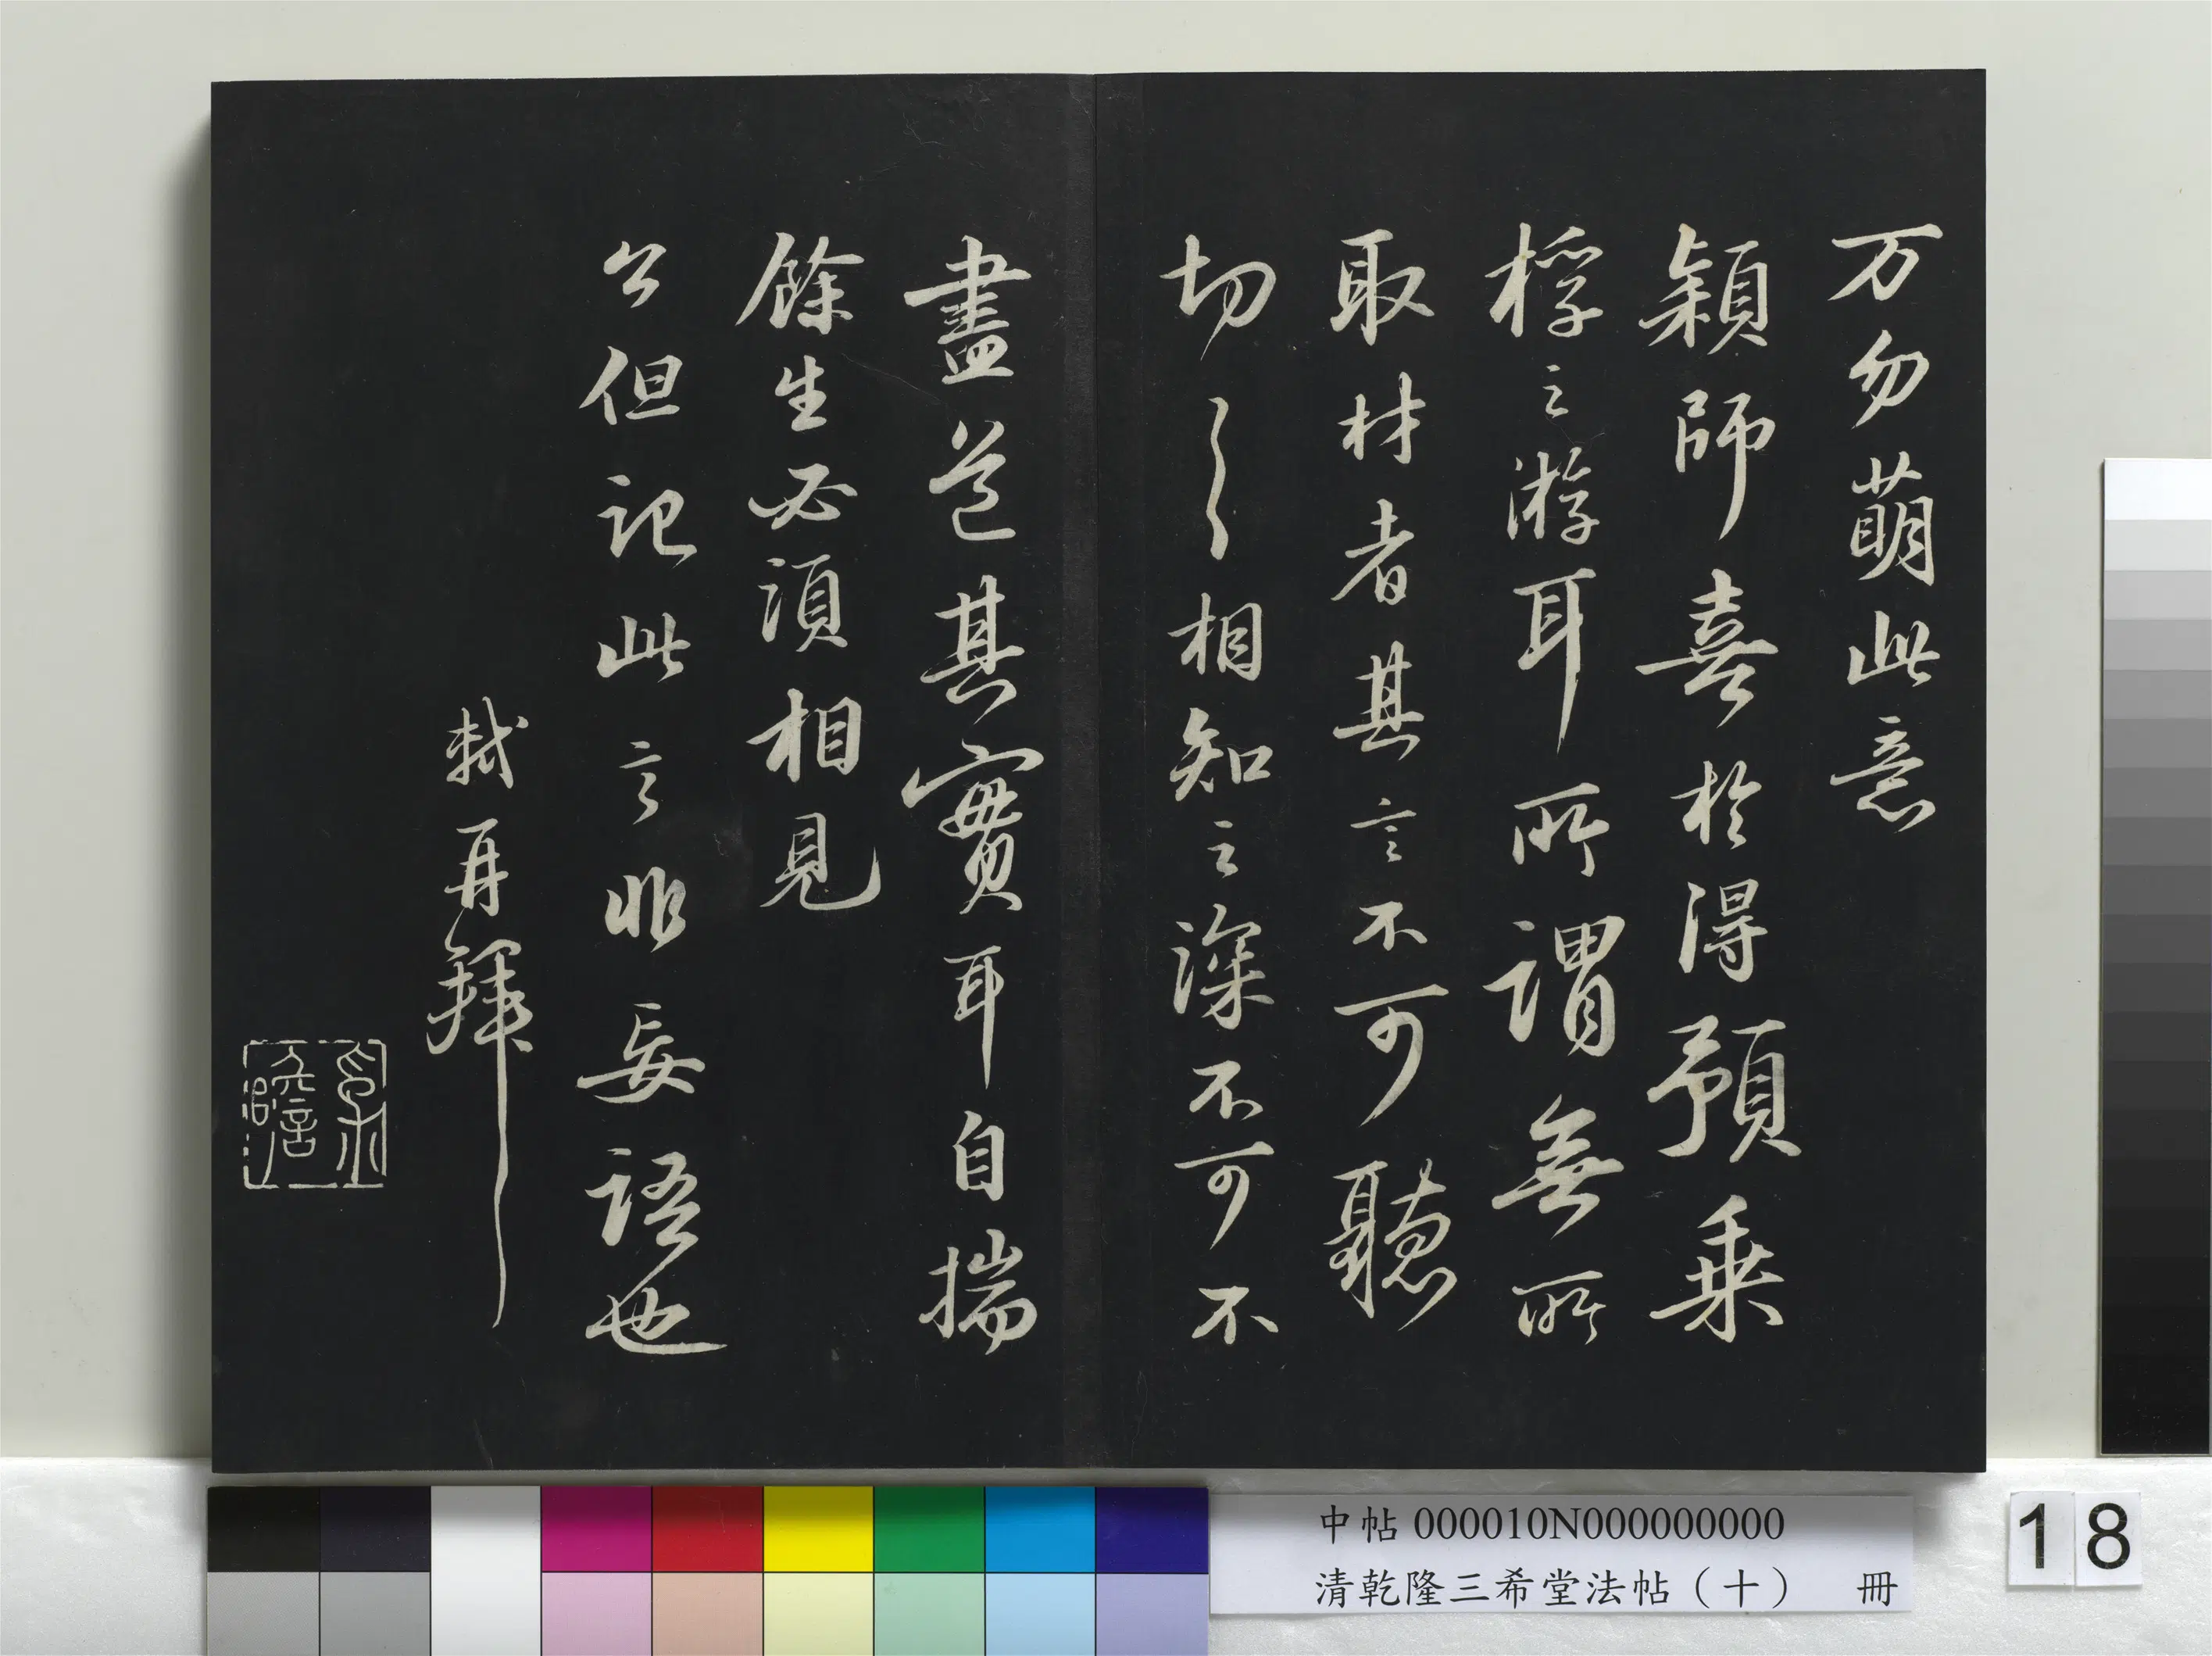 万勿萌此意
穎師喜於得預乗
桴之游耳所謂無所
取材者其言不可聽
切〻相知之深不可不
盡道其實耳自揣
餘生必須相見
公但記此言非妄語也
軾再拜
中帖 000010N000000000
清乾隆三希堂法帖（十） 冊
18